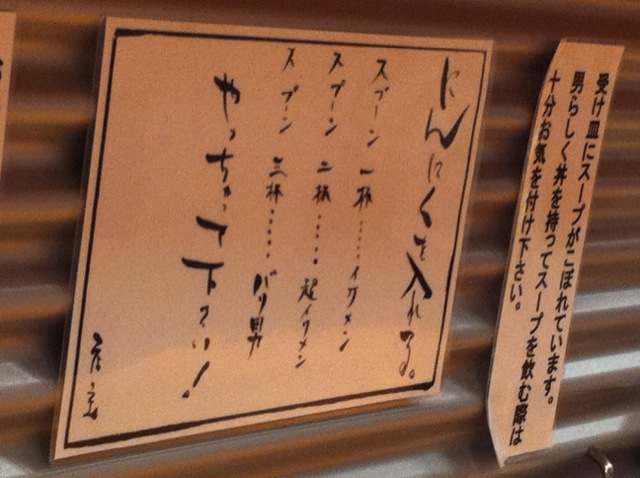 受け皿にスープがこぼれています。
男らしく丼を持ってスープを飲む際は
十分お気を付け下さい。
にんにくを入れる。
スプーン一杯……イケメン
スプーン二杯……超イケメン
スプーン三杯……バリ男
やっちゃって下さい！
店主